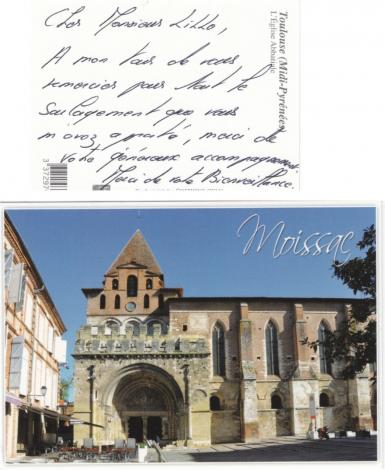 Cher Monsieur Lillo,
A mon tour de vous
remercier pour tout le
soulagement que vous
m'avez apporté, merci de
votre généreux accompagnement.
Merci de votre Bienveillance.
Toulouse (Midi-Pyrénées)
L'Église Abbatiale
3 37297
Moissac